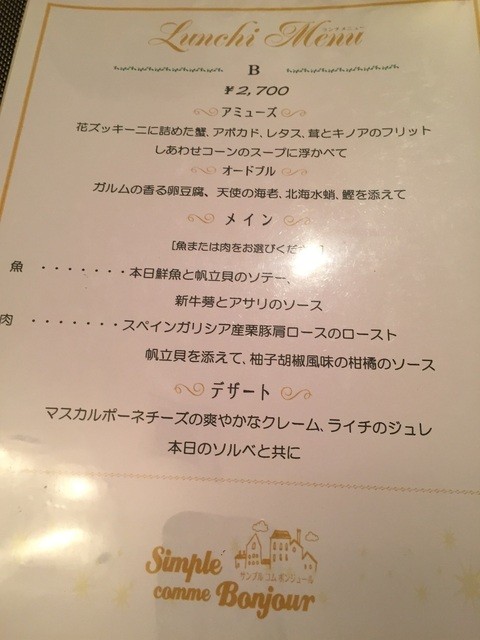 Lunchi Menu
ランチメニュー
B
¥2,700
アミューズ
花ズッキーニに詰めた蟹、アボカド、レタス、茸とキノアのフリット
しあわせコーンのスープに浮かべて
オードブル
ガルムの香る卵豆腐、天使の海老、北海水蛸、鰹を添えて
メイン
[魚または肉をお選びくだ
魚 ・・・・・・・本日鮮魚と帆立貝のソテー、
新牛蒡とアサリのソース
肉 ・・・・・・・スペインガリシア産栗豚肩ロースのロースト
帆立貝を添えて、柚子胡椒風味の柑橘のソース
デザート
マスカルポーネチーズの爽やかなクレーム、ライチのジュレ
本日のソルベと共に
Simple
サンプル コム ボンジュール
comme Bonjour